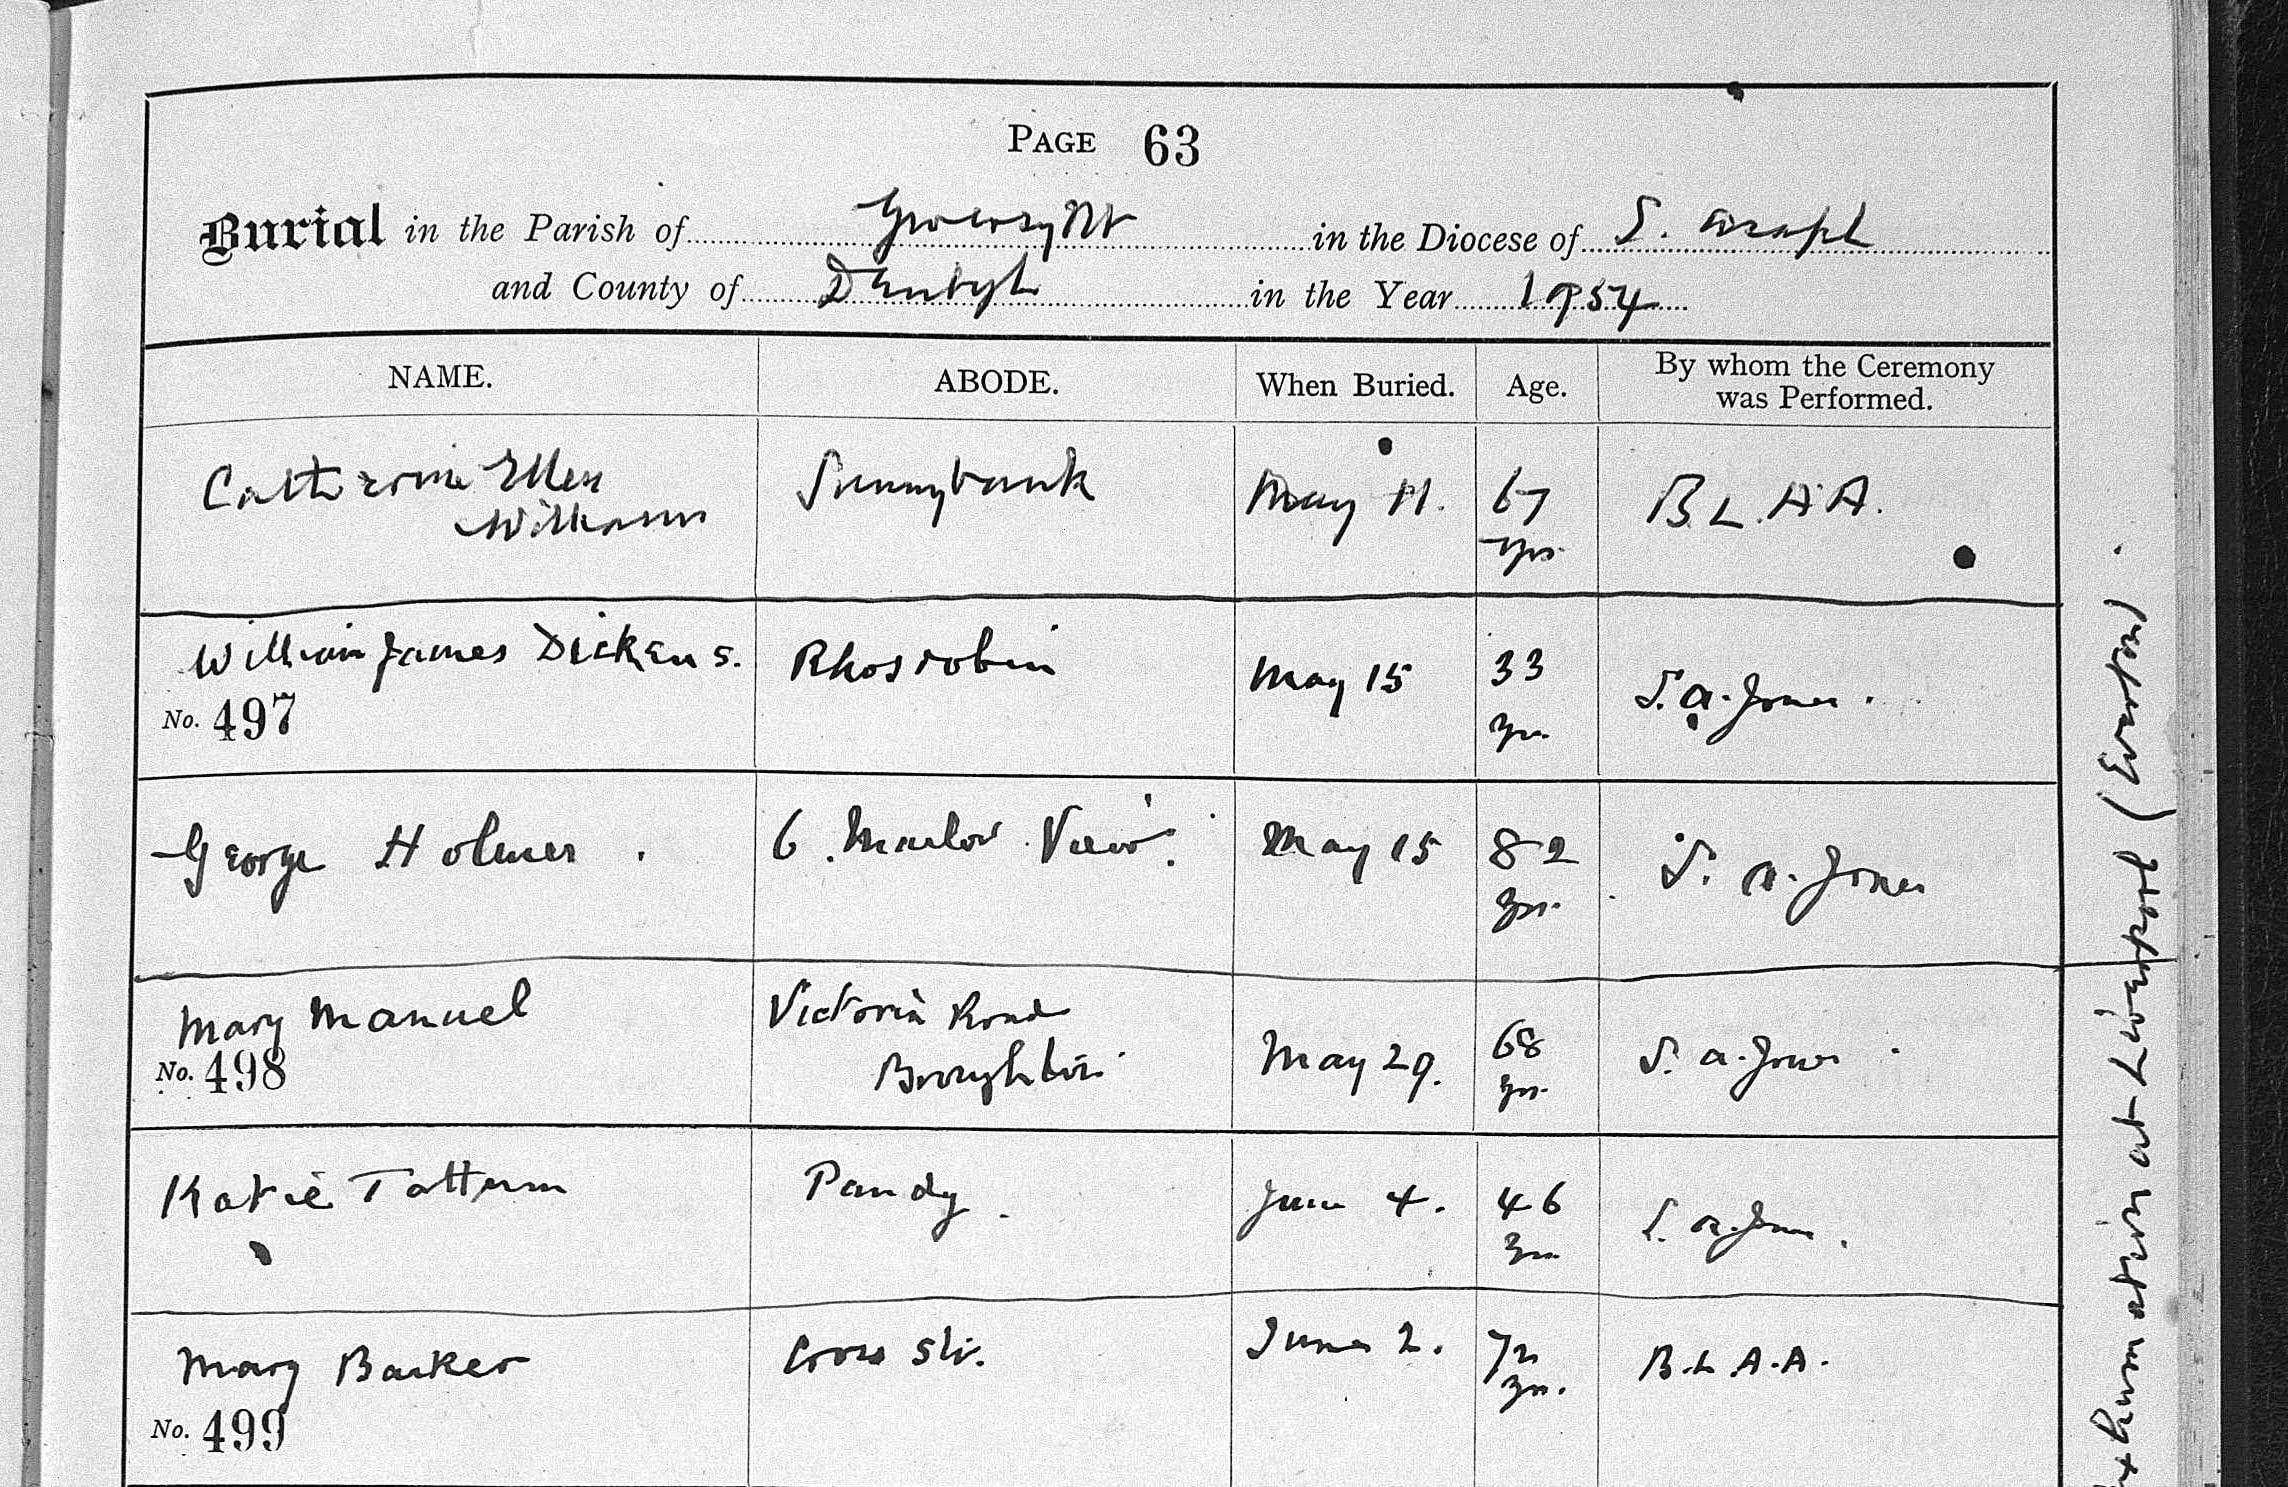 PAGE 63
Burial in the Parish of Gwersyllt in the Diocese of S. Asaph
and County of Denbigh in the Year 1954
NAME. ABODE. When Buried. Age. By whom the Ceremony was Performed.
Catherine Ellen Sunnybank May 11. 67 B. L. A. A.
Williams yrs.
William James Dickens. Rhosrobin May 15 33 S. A. Jones.
No. 497 yrs.
George Holmes. 6. View. May 15 82 S. A. Jones
yrs.
Mary Manuel Victoria Road May 29. 68 S. A. Jones.
No. 498 Broughton. yrs.
Katie Tattum Pandy. June 4. 46 S. A. Jones.
yrs.
Mary Barker Cross Str. June 2. 72 B. L. A. A.
No. 499 yrs.
at Liverpool (Everton).